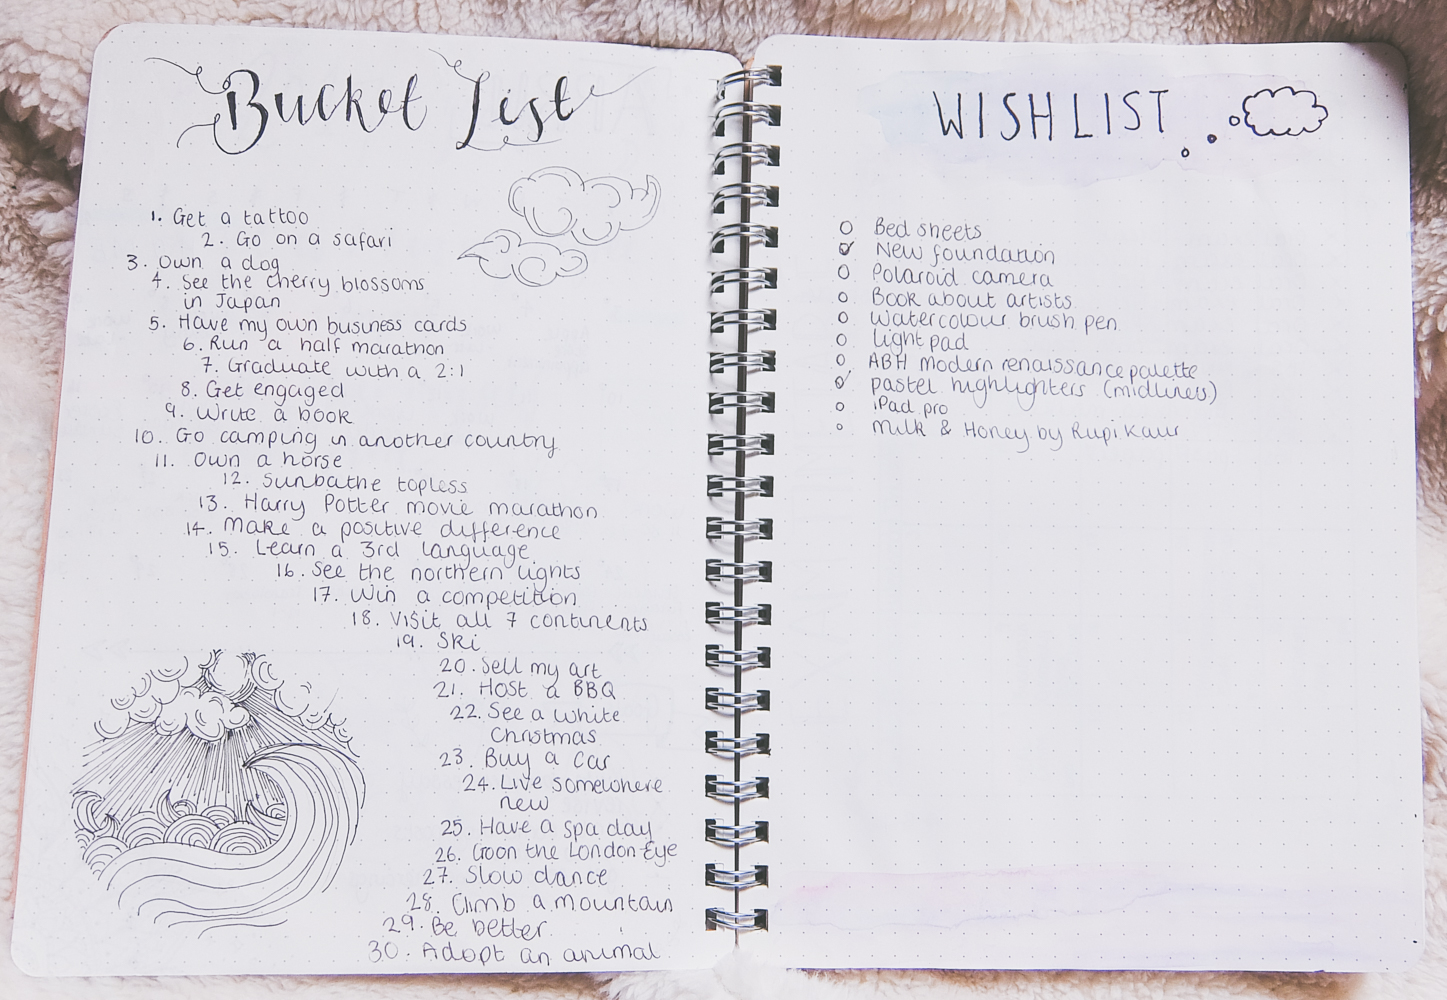 Bucket List
1. Get a tattoo
2. Go on a safari
3. Own a dog
4. See the cherry blossoms
in Japan
5. Have my own business cards
6. Run a half marathon
7. Graduate with a 2:1
8. Get engaged
9. Write a book
10. Go camping in another country
11. Own a horse
12. Sunbathe topless
13. Harry Potter movie marathon
14. Make a positive difference
15. Learn a 3rd language
16. See the northern lights
17. Win a competition
18. Visit all 7 continents
19. Ski
20. Sell my art
21. Host a BBQ
22. See a white
Christmas
23. Buy a car
24. Live somewhere
new
25. Have a spa day
26. Go on the London Eye
27. Slow dance
28. Climb a mountain
29. Be better
30. Adopt an animal
WISHLIST
Bed sheets
New foundation
Polaroid camera
Book about artists
Watercolour brush pen
Light pad
ABH modern renaissance palette
pastel highlighters (midliners)
iPad pro
Milk & Honey by Rupi Kaur